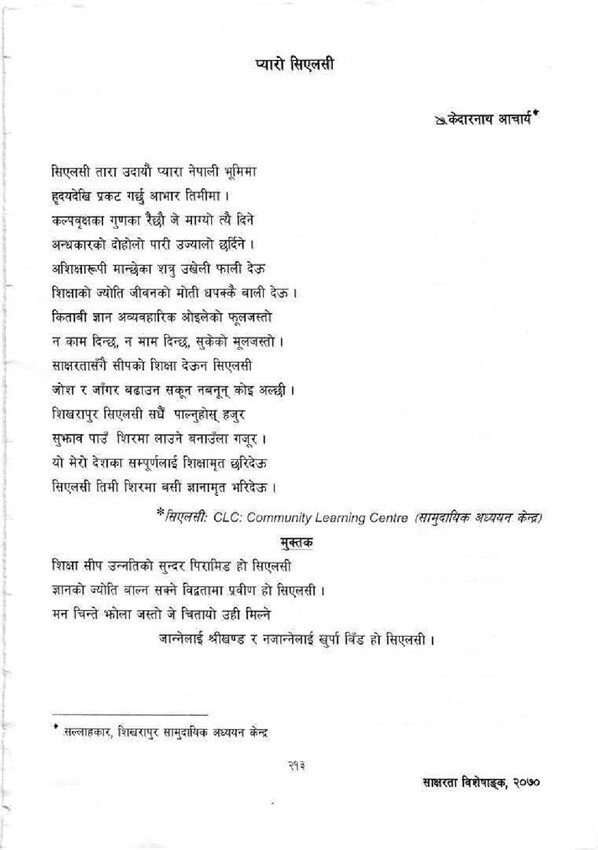 प्यारो सिएलसी
केदारनाथ आचार्य*
सिएलसी तारा उदायौ प्यारा नेपाली भूमिमा
हृदयदेखि प्रकट गर्छु आभार तिमीमा ।
कल्पवृक्षका गुणका रैछौ जे माग्यो त्यै दिने
अन्धकारको दोहोलो पारी उज्यालो छर्दिने ।
अशिक्षारूपी मान्छेका शत्रु उखेली फाली देऊ
शिक्षाको ज्योति जीवनको मोती धपक्कै बाली देऊ ।
किताबी ज्ञान अव्यवहारिक ओइलेको फूलजस्तो
न काम दिन्छ, न माम दिन्छ, सुकेको मूलजस्तो ।
साक्षरतासँगै सीपको शिक्षा देऊन सिएलसी
जोश र जाँगर बढाउन सकून नबनून् कोइ अल्छी ।
शिखरापुर सिएलसी सधैँ पाल्नुहोस् हजुर
सुझाव पाउँ शिरमा लाउने बनाउँला गजूर ।
यो मेरो देशका सम्पूर्णलाई शिक्षामृत छरिदेऊ
सिएलसी तिमी शिरमा बसी ज्ञानामृत भरिदेऊ ।
*सिएलसी: CLC: Community Learning Centre (सामुदायिक अध्ययन केन्द्र)
मुक्तक
शिक्षा सीप उन्नतिको सुन्दर पिरामिड हो सिएलसी
ज्ञानको ज्योति बाल्न सक्ने विद्वतामा प्रवीण हो सिएलसी ।
मन चिन्ते झोला जस्तो जे चितायो उही मिल्ने
जान्नेलाई श्रीखण्ड र नजान्नेलाई खुर्पा बिँड हो सिएलसी ।
* सल्लाहकार, शिखरापुर सामुदायिक अध्ययन केन्द्र
२१३
साक्षरता विशेषाङ्क, २०७०